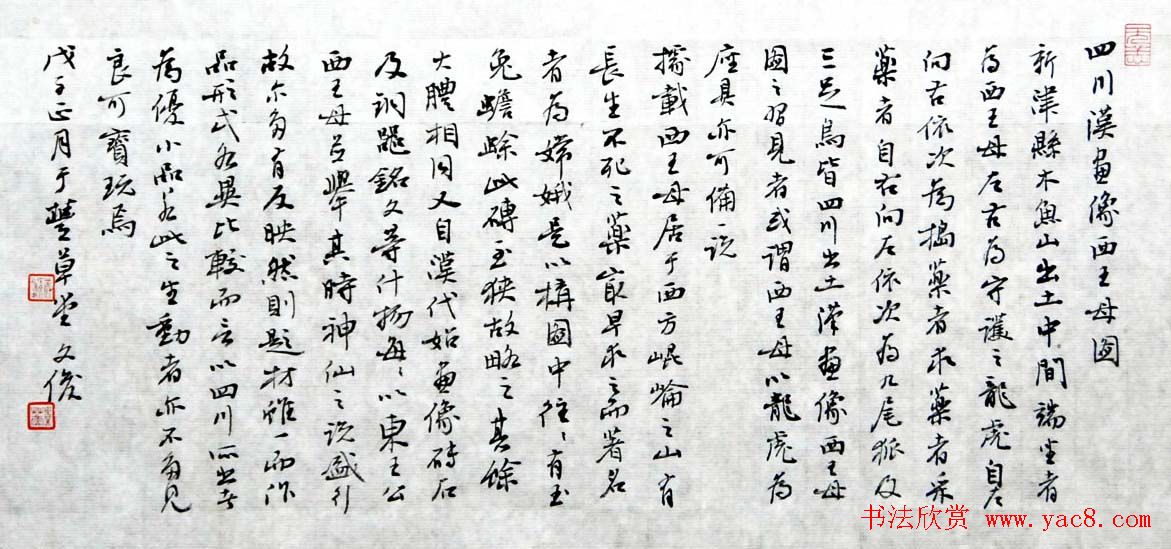 四川漢畫像西王母圖
新津縣木魚山出土中間端坐者
為西王母左右為守護之龍虎自左
向右依次為搗藥者求藥者采
藥者自右向左依次為九尾狐及
三足烏皆四川出土漢畫像西王母
圖之習見者或謂西王母以龍虎為
座具亦可備一說
據載西王母居于西方崐崙之山有
長生不死之藥最早求之而著名
者為嫦娥是以構圖中往〻有玉
兔蟾蜍此磚至狹故略之其餘
大體相同又自漢代始畫像磚石
及銅器銘文等什物每〻以東王公
西王母並舉其時神仙之說盛行
故亦多有反映然則題材雖一而作
品形式各異比較而言以四川所出者
為優小品若此之生動者亦不多見
良可寶玩焉
戊子正月于豐草堂文俊
书法欣赏 www.yac8.com